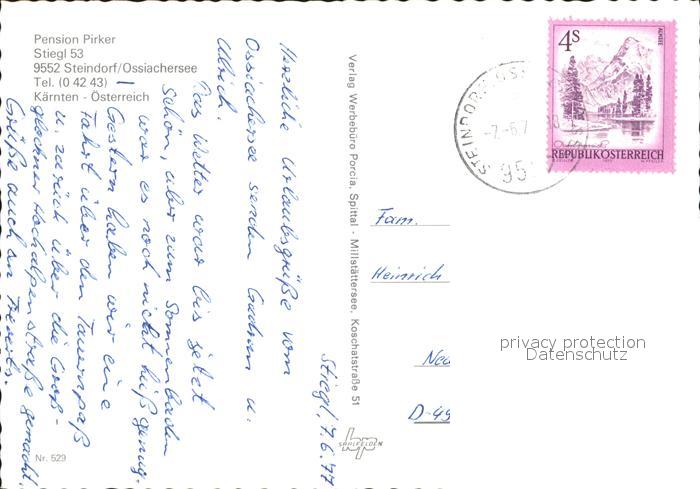 Pension Pirker
Stiegl 53
9552 Steindorf/Ossiachersee
Tel. (0 42 43)
Kärnten - Österreich
Stiegl, 7.6.77
Herzliche Urlaubsgrüße vom
Ossiachersee senden Gudrun u.
Ulrich.
Das Wetter war bis jetzt
schön, aber zum Sonnenbaden
war es noch nicht heiß genug.
Gestern haben wir eine
Fahrt über den Tauernpaß
u. zurück über die Groß-
glockner Hochalpenstraße gemacht.
Grüße auch an
Nr. 529
Verlag Werbebüro Porcia, Spittal - Millstättersee, Koschatstraße 51
SAALFELDEN
4S
ALMSEE
REPUBLIK ÖSTERREICH
STEINDORF
-7.-6.7
95
Fam.
Heinrich
D-45
privacy protection
Datenschutz